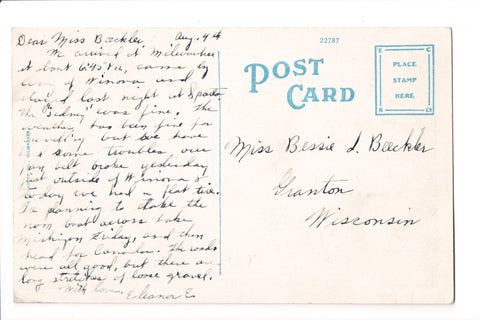 Dear Miss Beckler, Aug. 4th
We arrived at Milwaukee
at bout 6:45 P.M., came by
way of Winona and
stay'd last night at Sparta.
The "Sidney" was fine. The
weather has been fine for
but we have
some troubles our
fan belt broke yesterday
just outside of Winona &
today we had a flat tire.
I'm planning to take the
boat across Lake
Michigan Friday, and then
head for Canada. The roads
were all good, but there are
long stretches of loose gravel.
With love,
Eleanor E.
22787
POST CARD
PLACE
STAMP
HERE
Miss Bessie L. Beckler
Granton
Wisconsin